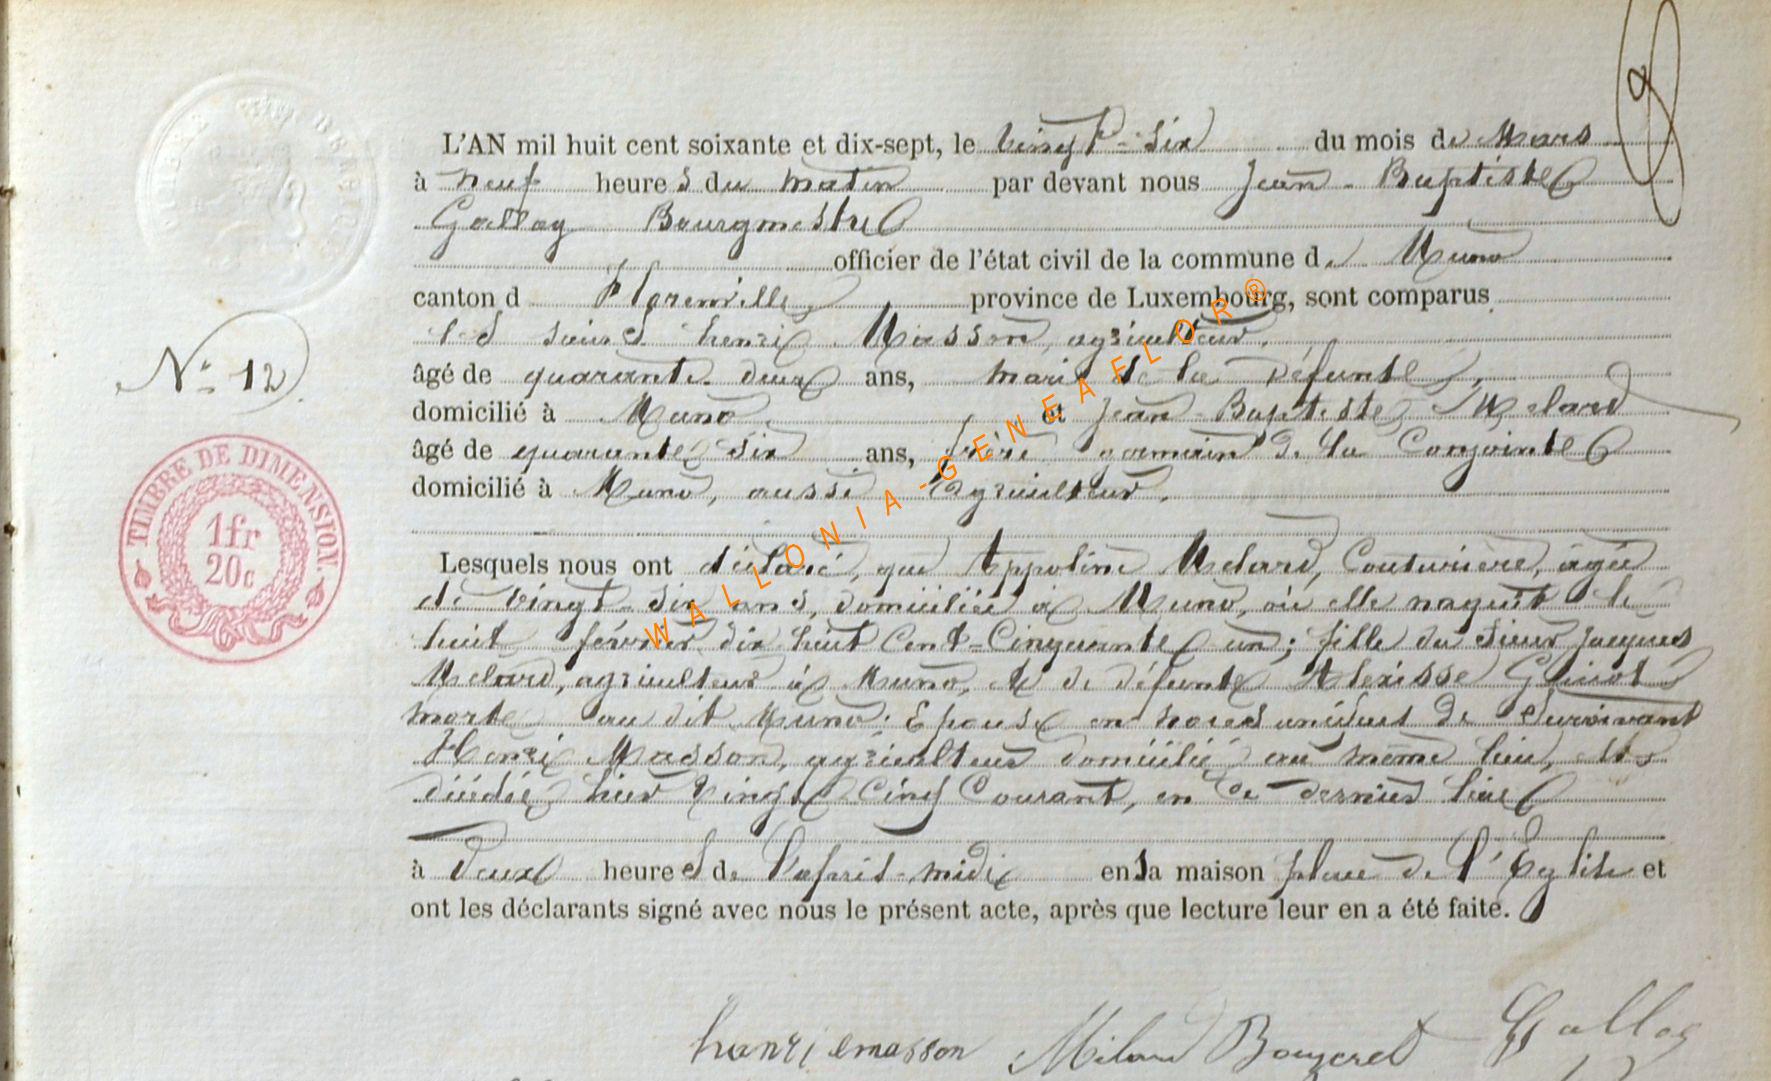 L'AN mil huit cent soixante et dix-sept, le vingt-six du mois de Mars
à neuf heures du matin par devant nous Jean-Baptiste
Gallog Bourgmestre
officier de l'état civil de la commune de Muno
canton d Florenville, province de Luxembourg, sont comparus
les sieurs henri Masson, agriculteur,
âgé de quarante-deux ans, mari de la Défunte,
domicilié à Muno et Jean-Baptiste Melard
âgé de quarante six ans, frère germain de la Conjointe
domicilié à Muno, aussi agriculteur.
Lesquels nous ont déclaré, que Appoline Melard, Couturière, âgée
de vingt-six ans, domiciliée à Muno, où elle naquit le
huit février dix huit Cent-Cinquante un; fille du sieur Jacques
Melard, agriculteur à Muno, & de défunte Alexisse Guiot
morte au dit Muno: Epouse en noces du survivant
Henri Masson, agriculteur domicilié au même lieu, est
décédée hier vingt Cinq Courant, en ce dernier lieu
à deux heures de l'après-midi en sa maison place de l'Eglise et
ont les déclarants signé avec nous le présent acte, après que lecture leur en a été faite.
N° 12
TIMBRE DE DIMENSION.
1fr
20c
henri masson
WALLONIA-GENEAFLOR®